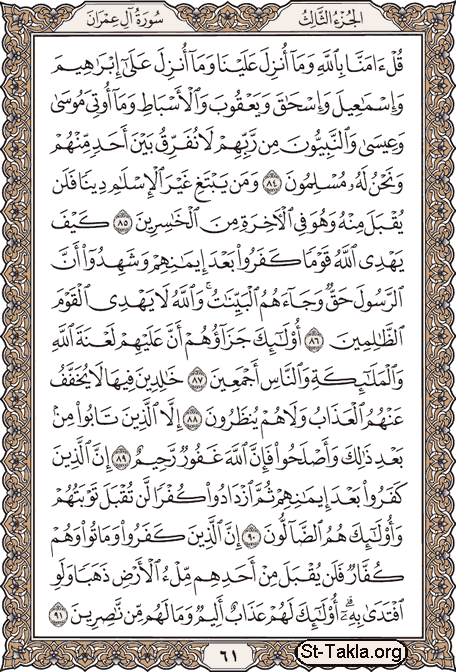 الجزء الثالث
سورة آل عمران
قُلْ ءَامَنَّا بِٱللَّهِ وَمَآ أُنزِلَ عَلَيْنَا وَمَآ أُنزِلَ عَلَىٰٓ إِبْرَٰهِيمَ
وَإِسْمَٰعِيلَ وَإِسْحَٰقَ وَيَعْقُوبَ وَٱلْأَسْبَاطِ وَمَآ أُوتِىَ مُوسَىٰ
وَعِيسَىٰ وَٱلنَّبِيُّونَ مِن رَّبِّهِمْ لَا نُفَرِّقُ بَيْنَ أَحَدٍ مِّنْهُمْ
وَنَحْنُ لَهُۥ مُسْلِمُونَ ٨٤ وَمَن يَبْتَغِ غَيْرَ ٱلْإِسْلَٰمِ دِينًا فَلَن
يُقْبَلَ مِنْهُ وَهُوَ فِى ٱلْءَاخِرَةِ مِنَ ٱلْخَٰسِرِينَ ٨٥ كَيْفَ
يَهْدِى ٱللَّهُ قَوْمًا كَفَرُوا۟ بَعْدَ إِيمَٰنِهِمْ وَشَهِدُوٓا۟ أَنَّ
ٱلرَّسُولَ حَقٌّ وَجَآءَهُمُ ٱلْبَيِّنَٰتُ ۚ وَٱللَّهُ لَا يَهْدِى ٱلْقَوْمَ
ٱلظَّٰلِمِينَ ٨٦ أُو۟لَٰٓئِكَ جَزَآؤُهُمْ أَنَّ عَلَيْهِمْ لَعْنَةَ ٱللَّهِ
وَٱلْمَلَٰٓئِكَةِ وَٱلنَّاسِ أَجْمَعِينَ ٨٧ خَٰلِدِينَ فِيهَا لَا يُخَفَّفُ
عَنْهُمُ ٱلْعَذَابُ وَلَا هُمْ يُنظَرُونَ ٨٨ إِلَّا ٱلَّذِينَ تَابُوا۟ مِنۢ
بَعْدِ ذَٰلِكَ وَأَصْلَحُوا۟ فَإِنَّ ٱللَّهَ غَفُورٌ رَّحِيمٌ ٨٩ إِنَّ ٱلَّذِينَ
كَفَرُوا۟ بَعْدَ إِيمَٰنِهِمْ ثُمَّ ٱزْدَادُوا۟ كُفْرًا لَّن تُقْبَلَ تَوْبَتُهُمْ
وَأُو۟لَٰٓئِكَ هُمُ ٱلضَّآلُّونَ ٩٠ إِنَّ ٱلَّذِينَ كَفَرُوا۟ وَمَاتُوا۟ وَهُمْ
كُفَّارٌ فَلَن يُقْبَلَ مِنْ أَحَدِهِم مِّلْءُ ٱلْأَرْضِ ذَهَبًا وَلَوِ
ٱفْتَدَىٰ بِهِۦٓ ۗ أُو۟لَٰٓئِكَ لَهُمْ عَذَابٌ أَلِيمٌ وَمَا لَهُم مِّن نَّٰصِرِينَ ٩١
٦١
St-Takla.org